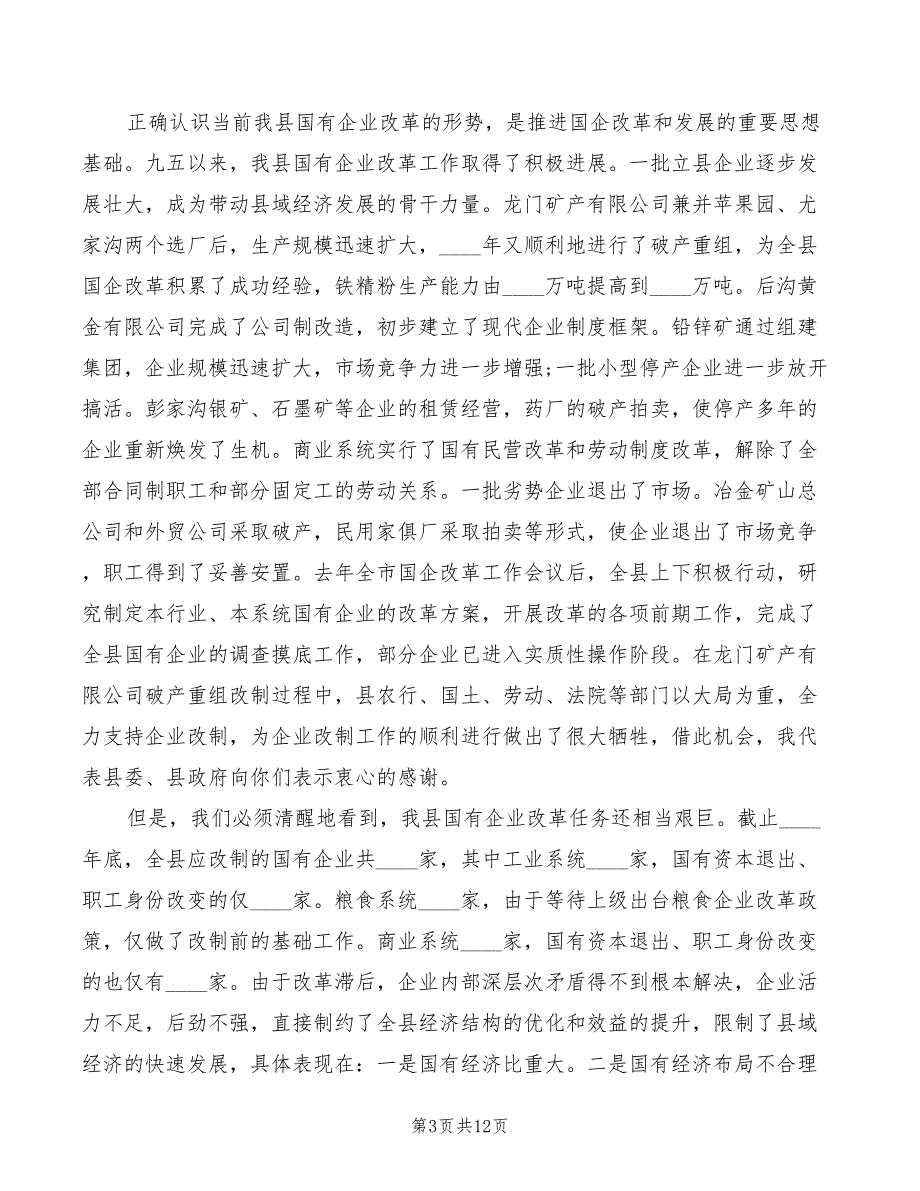 正确认识当前我县国有企业改革的形势，是推进国企改革和发展的重要思想
基础。九五以来，我县国有企业改革工作取得了积极进展。一批立县企业逐步发
展壮大，成为带动县域经济发展的骨干力量。龙门矿产有限公司兼并苹果园、尤
家沟两个选厂后，生产规模迅速扩大，____年又顺利地进行了破产重组，为全县
国企改革积累了成功经验，铁精粉生产能力由____万吨提高到____万吨。后沟黄
金有限公司完成了公司制改造，初步建立了现代企业制度框架。铅锌矿通过组建
集团，企业规模迅速扩大，市场竞争力进一步增强;一批小型停产企业进一步放开
搞活。彭家沟银矿、石墨矿等企业的租赁经营，药厂的破产拍卖，使停产多年的
企业重新焕发了生机。商业系统实行了国有民营改革和劳动制度改革，解除了全
部合同制职工和部分固定工的劳动关系。一批劣势企业退出了市场。冶金矿山总
公司和外贸公司采取破产，民用家俱厂采取拍卖等形式，使企业退出了市场竞争
，职工得到了妥善安置。去年全市国企改革工作会议后，全县上下积极行动，研
究制定本行业、本系统国有企业的改革方案，开展改革的各项前期工作，完成了
全县国有企业的调查摸底工作，部分企业已进入实质性操作阶段。在龙门矿产有
限公司破产重组改制过程中，县农行、国土、劳动、法院等部门以大局为重，全
力支持企业改制，为企业改制工作的顺利进行做出了很大牺牲，借此机会，我代
表县委、县政府向你们表示衷心的感谢。
但是，我们必须清醒地看到，我县国有企业改革任务还相当艰巨。截止____
年底，全县应改制的国有企业共____家，其中工业系统____家，国有资本退出、
职工身份改变的仅____家。粮食系统____家，由于等待上级出台粮食企业改革政
策，仅做了改制前的基础工作。商业系统____家，国有资本退出、职工身份改变
的也仅有____家。由于改革滞后，企业内部深层次矛盾得不到根本解决，企业活
力不足，后劲不强，直接制约了全县经济结构的优化和效益的提升，限制了县域
经济的快速发展，具体表现在：一是国有经济比重大。二是国有经济布局不合理
第3页共12页